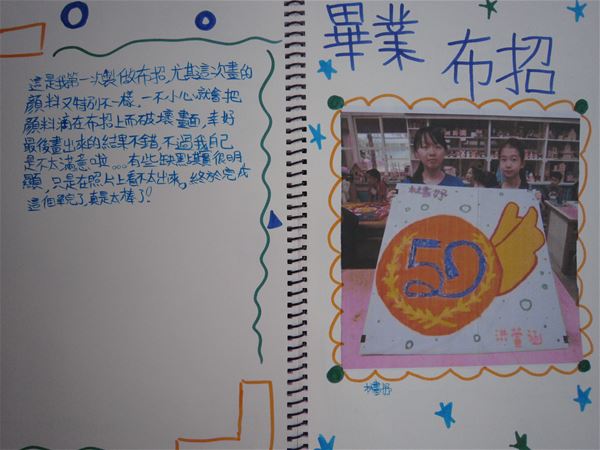 這是我第一次製做布招,尤其這次畫的
顏料又特別不一樣,一不小心就會把
顏料滴在布招上而破壞畫面,幸好
最後畫出來的結果不錯,不過我自己
是不太滿意啦。。。有些缺點蠻很明
顯,只是在照片上看不太出來。終於完成
這個單元了,真是太棒了!
畢業布招
林書妤
59
洪萱涵
林書妤